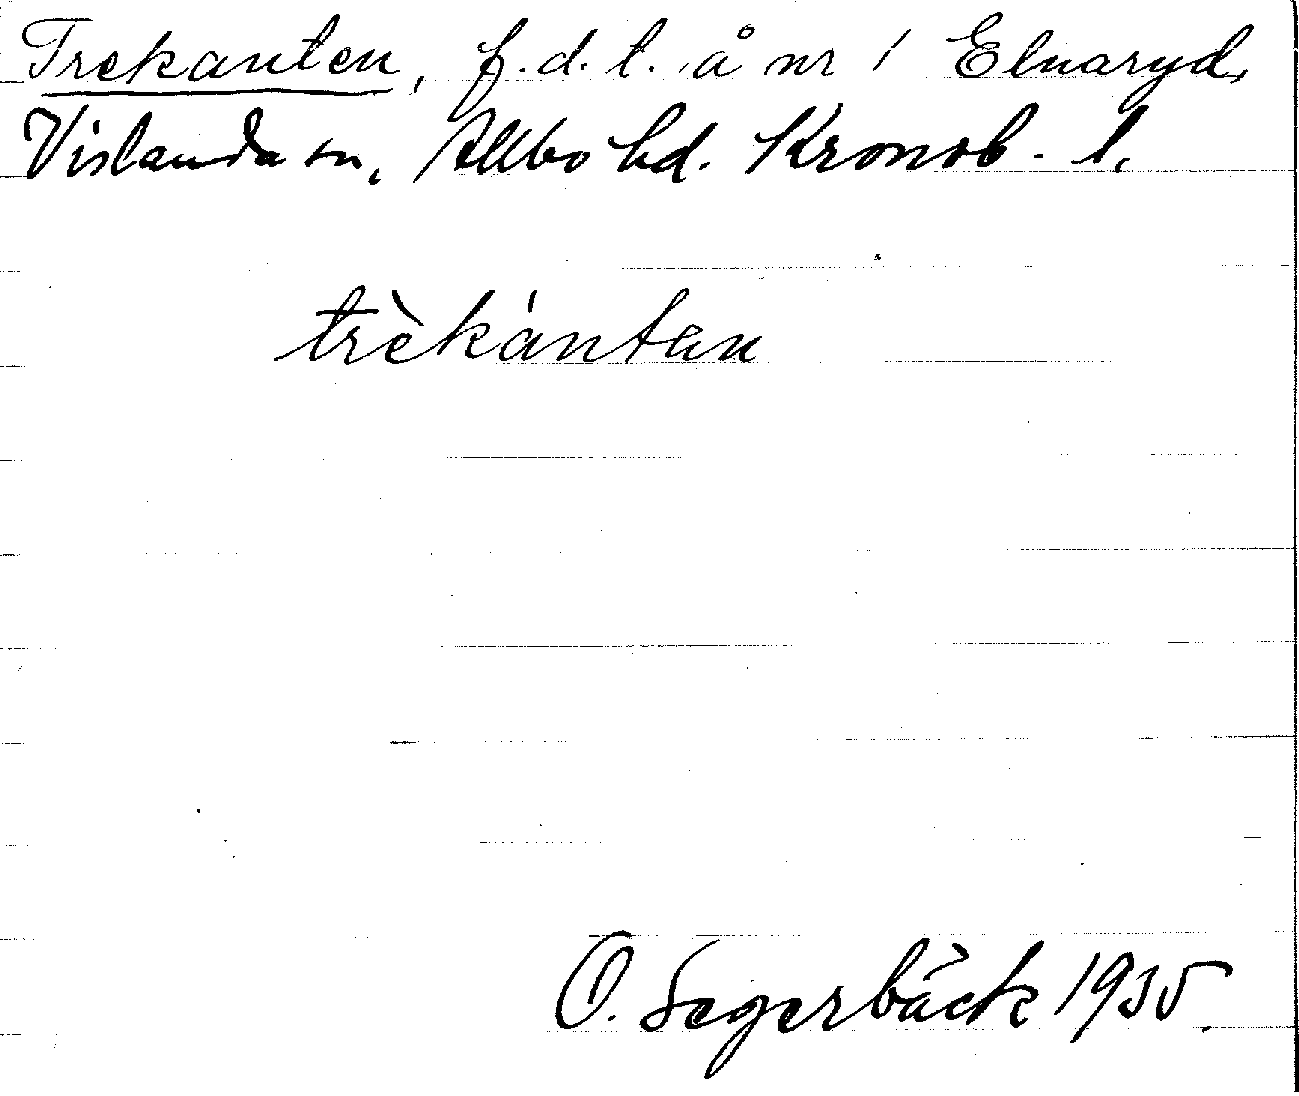 Trekanten, f.d. l. å nr 1 Elnaryd,
Vislanda sn, Allbo hd. Kronob. l.
trèkántan
O. Segerbäck 1935.